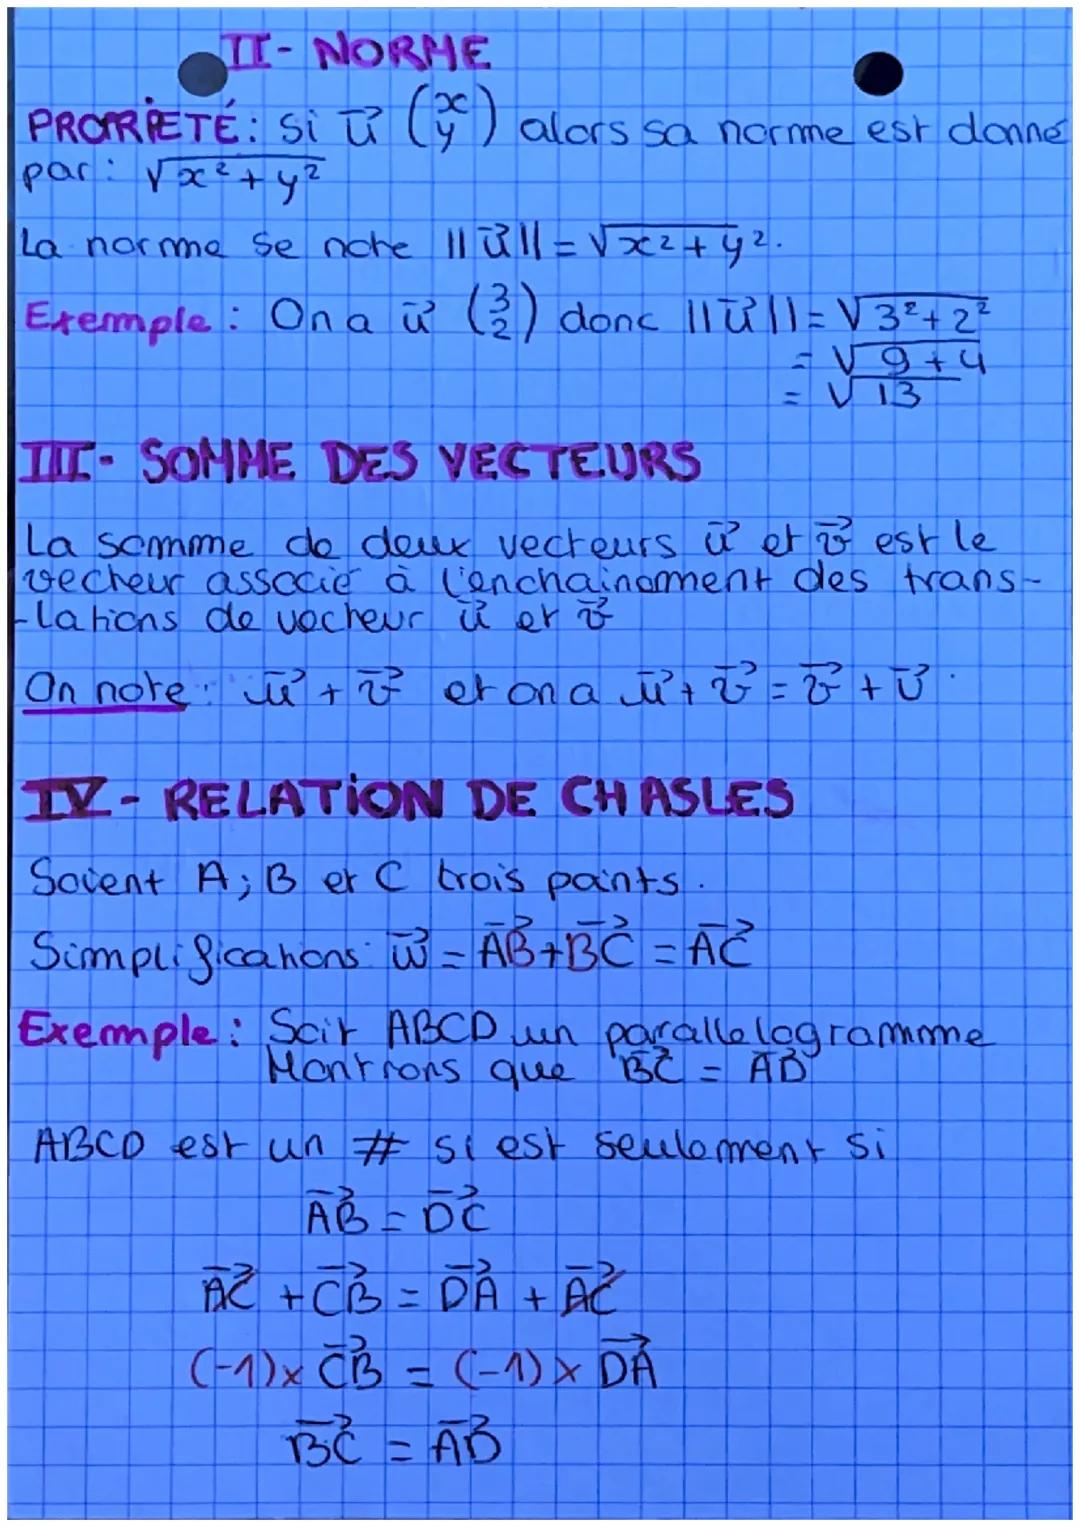 II- NORME
PROPRIÉTÉ: Si u⃗ (x y) alors sa norme est donné
par : √x²+y²
La norme se note ||u⃗|| = √x²+y².
Exemple : On a u⃗ (3 2) donc ||u⃗|| = √3²+2²
= √9+4
= √13
III- SOMME DES VECTEURS
La somme de deux vecteurs u⃗ et v⃗ est le
vecteur associé à l'enchainement des trans-
-lations de vecteur u⃗ et v⃗
On note : u⃗ + v⃗ et on a u⃗ + v⃗ = v⃗ + u⃗.
IV- RELATION DE CHASLES
Soient A; B et C trois points.
Simplifications: w⃗ = AB⃗ + BC⃗ = AC⃗
Exemple : Soit ABCD un parallelogramme
Montrons que BC⃗ = AD⃗
ABCD est un # si est seulement si
AB⃗ = DC⃗
AC⃗ + CB⃗ = DA⃗ + AC⃗
(-1)× CB⃗ = (-1)× DA⃗
BC⃗ = AD⃗